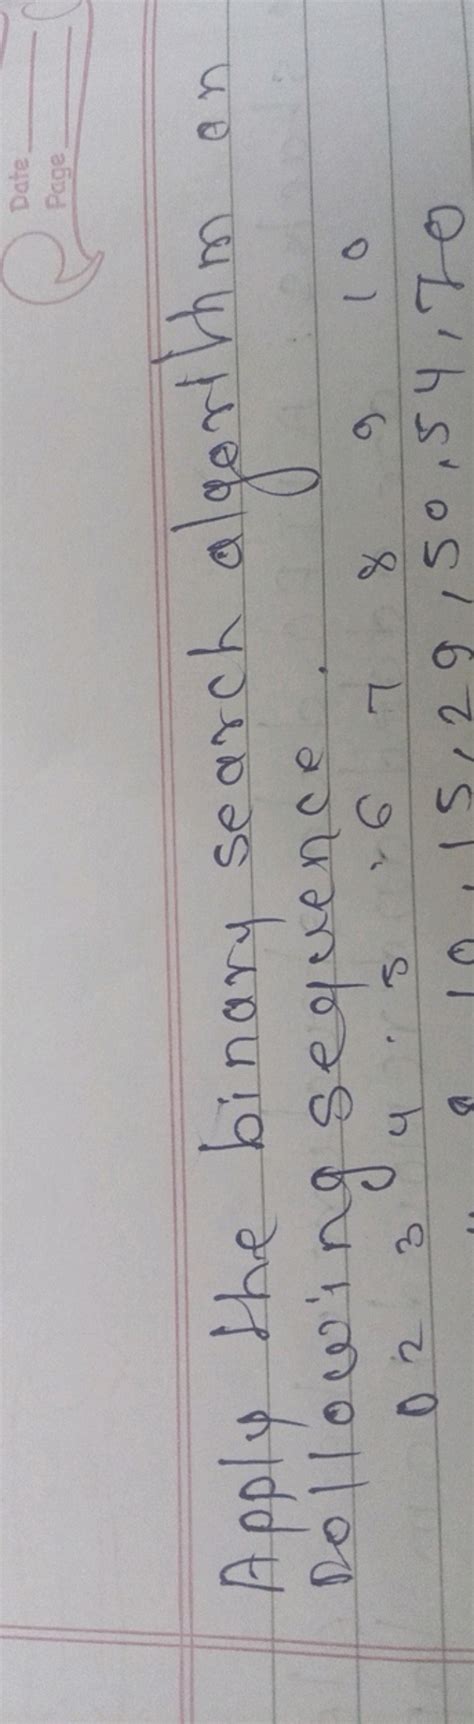 Date
Page
Apply the binary search algorithm on
following sequence.
0 2 3 4 5 6 7 8 9 10
10, 15, 29, 50, 54, 70